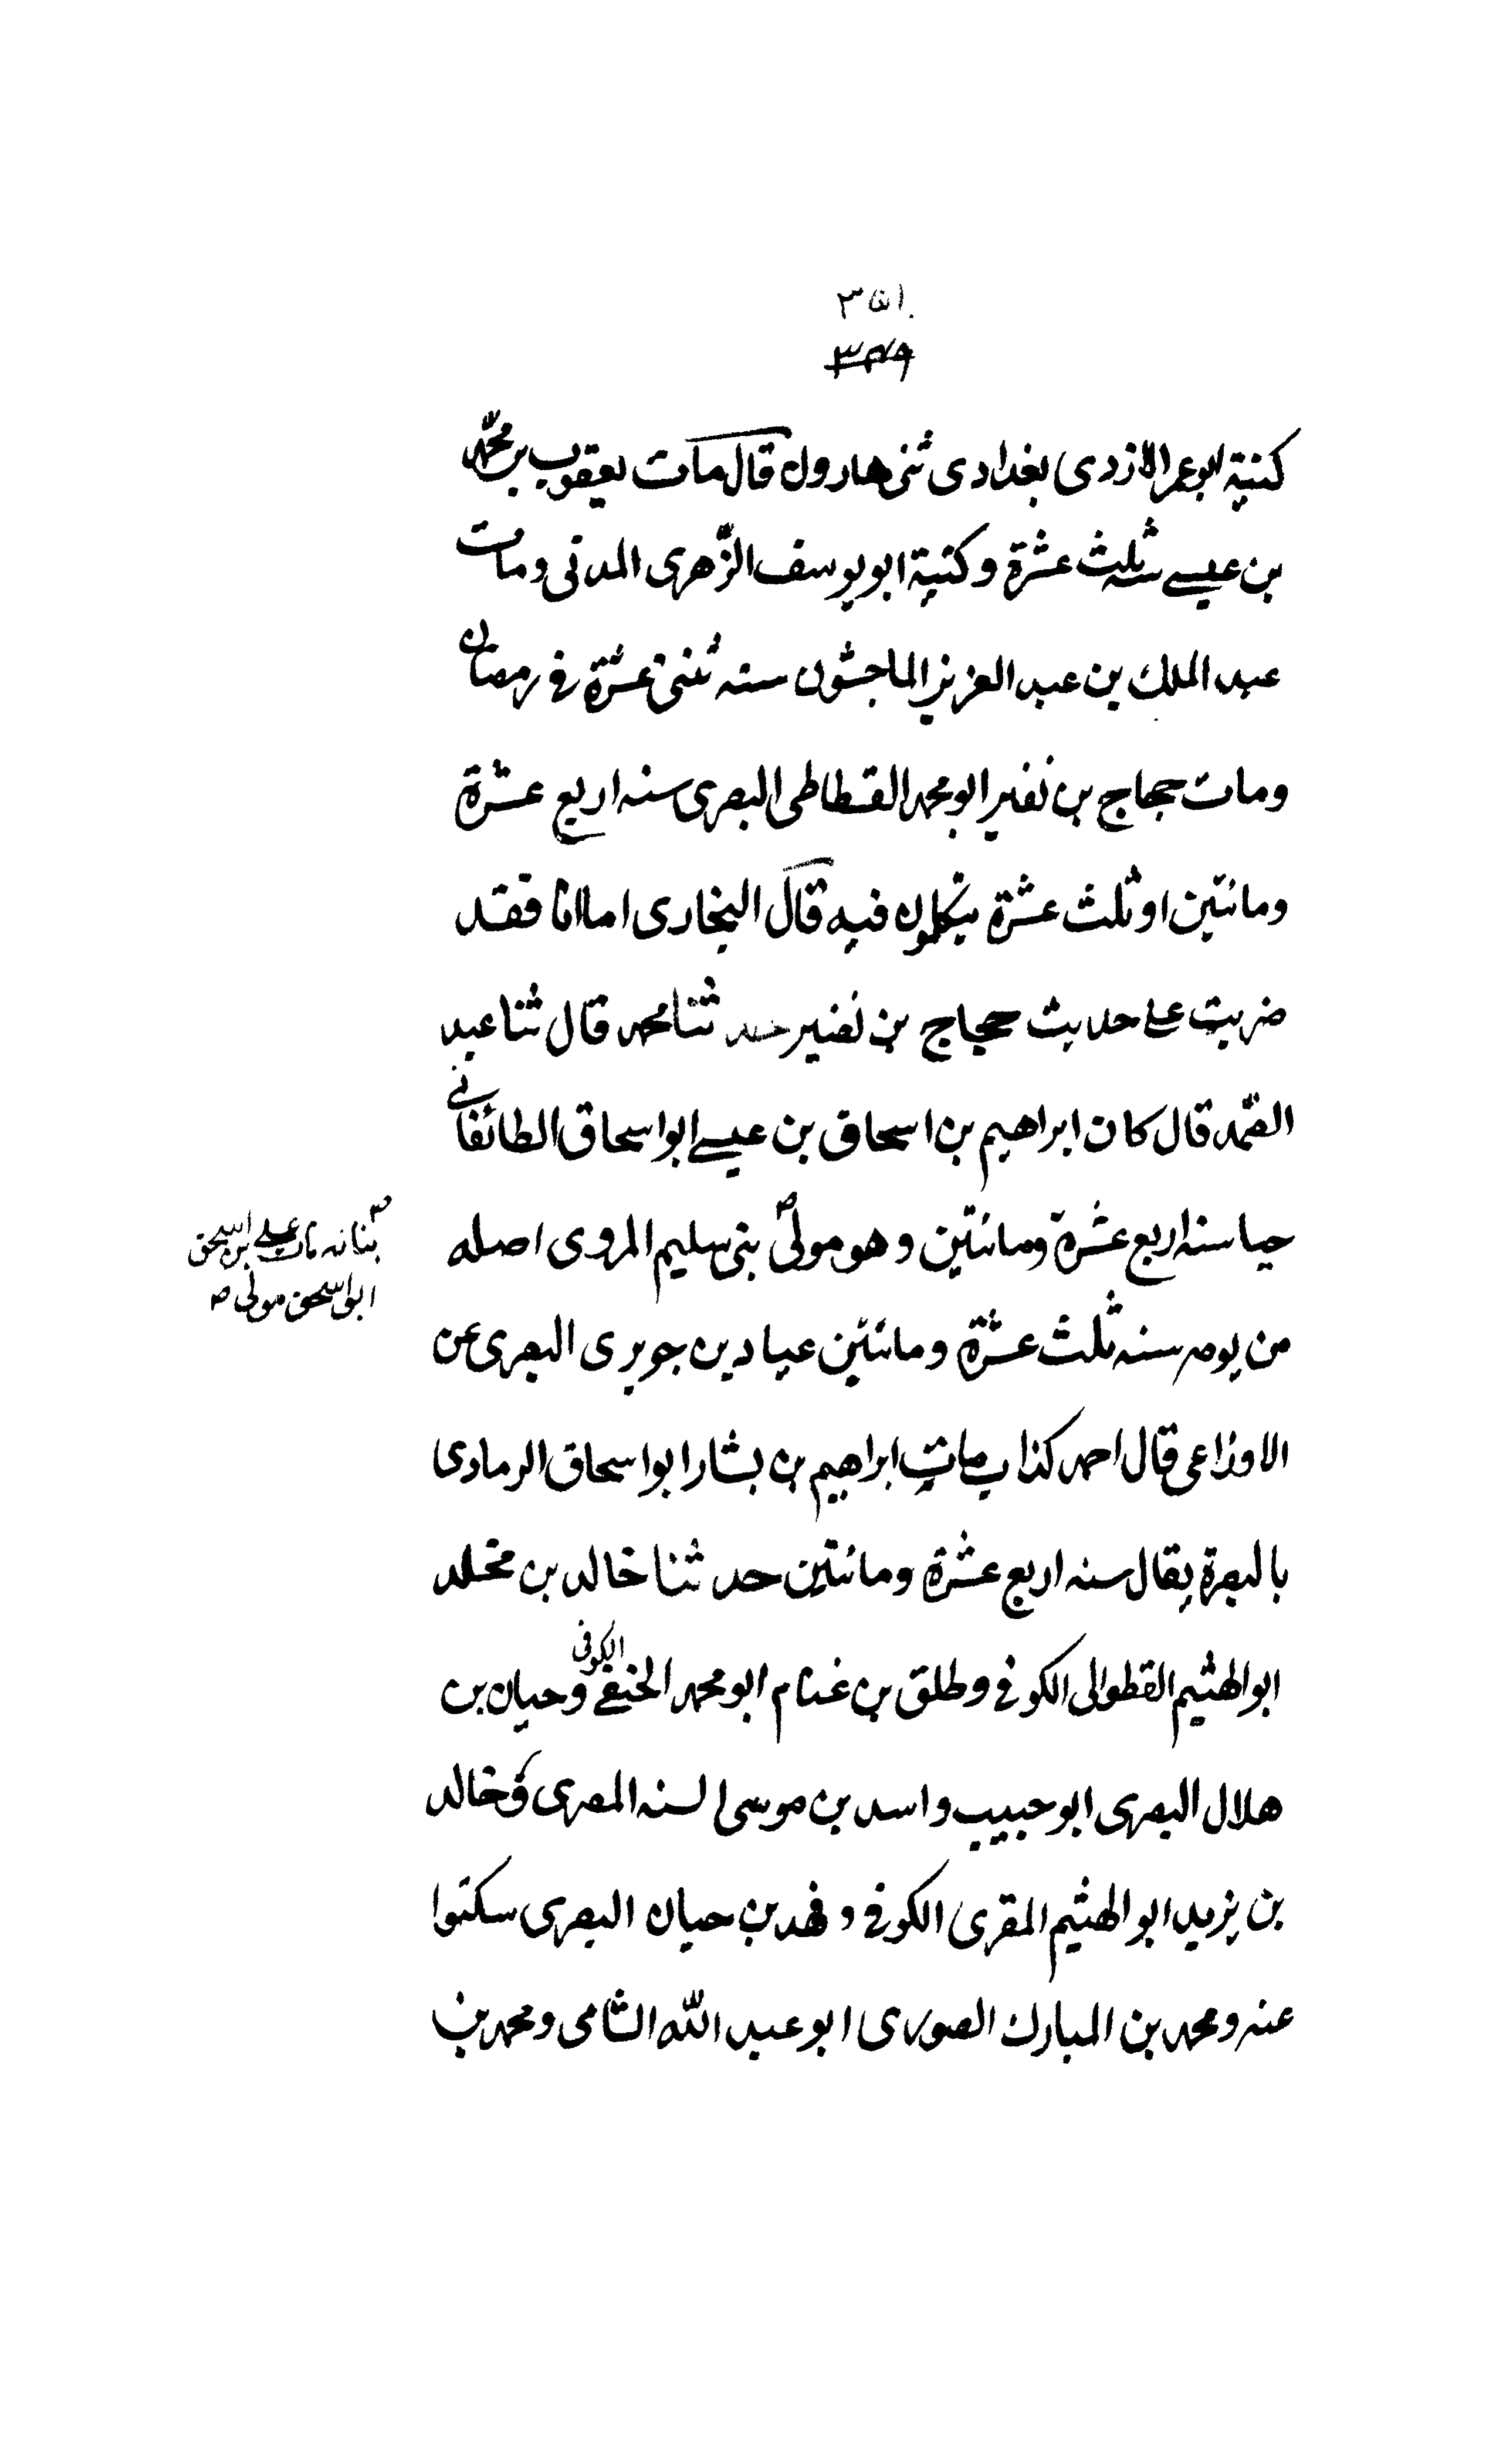 ٣٥١
٣٤٩
كنية ابو عمر الازدى بغدادى ثنى هارون قال مات يعقوب بن محمد
بن عيسى سنه ثلث عشرة وكنية ابو يوسف الزهرى المدنى ومات
عبد الملك بن عبد العزيز الماجشون سنه ثنتى عشرة فى رمضان
ومات حجاج بن نصير ابو محمد القسطاطى البصرى سنه اربع عشرة
ومائتين او ثلث عشرة يتكلمون فيه قال البخارى اما انا فقد
ضربت على حديث حجاج بن نصير حد ثنا محمد قال ثنا عبد
الصمد قال كان ابراهيم بن اسحاق بن عيسى ابو اسحاق الطالقانى
حيا سنه اربع عشرة ومائتين وهو مولى بنى سليم المروى اصله
بنانه مات على بن اسحق
ابو اسحق مولى
من يومه سنه ثلث عشرة ومائتين عباد بن جويرى البصرى عن
الاوزاعى قال احمد كذاب مات ابراهيم بن بشار ابو اسحاق الرمادى
بالبصرة يقال سنه اربع عشرة ومائتين حد ثنا خالد بن مخلد
ابو الهثيم القطوانى الكوفى وطلق بن غنام ابو محمد الحنفى الكوفى وحيان بن
هلال البصرى ابو حبيب واسد بن موسى السنه المصرى وخالد
بن يزيد ابو الهثيم المقرى الكوفى وفهد بن حيان البصرى سكتوا
عنه ومحمد بن المبارك الصورى ابو عبد الله الشامى ومحمد بن